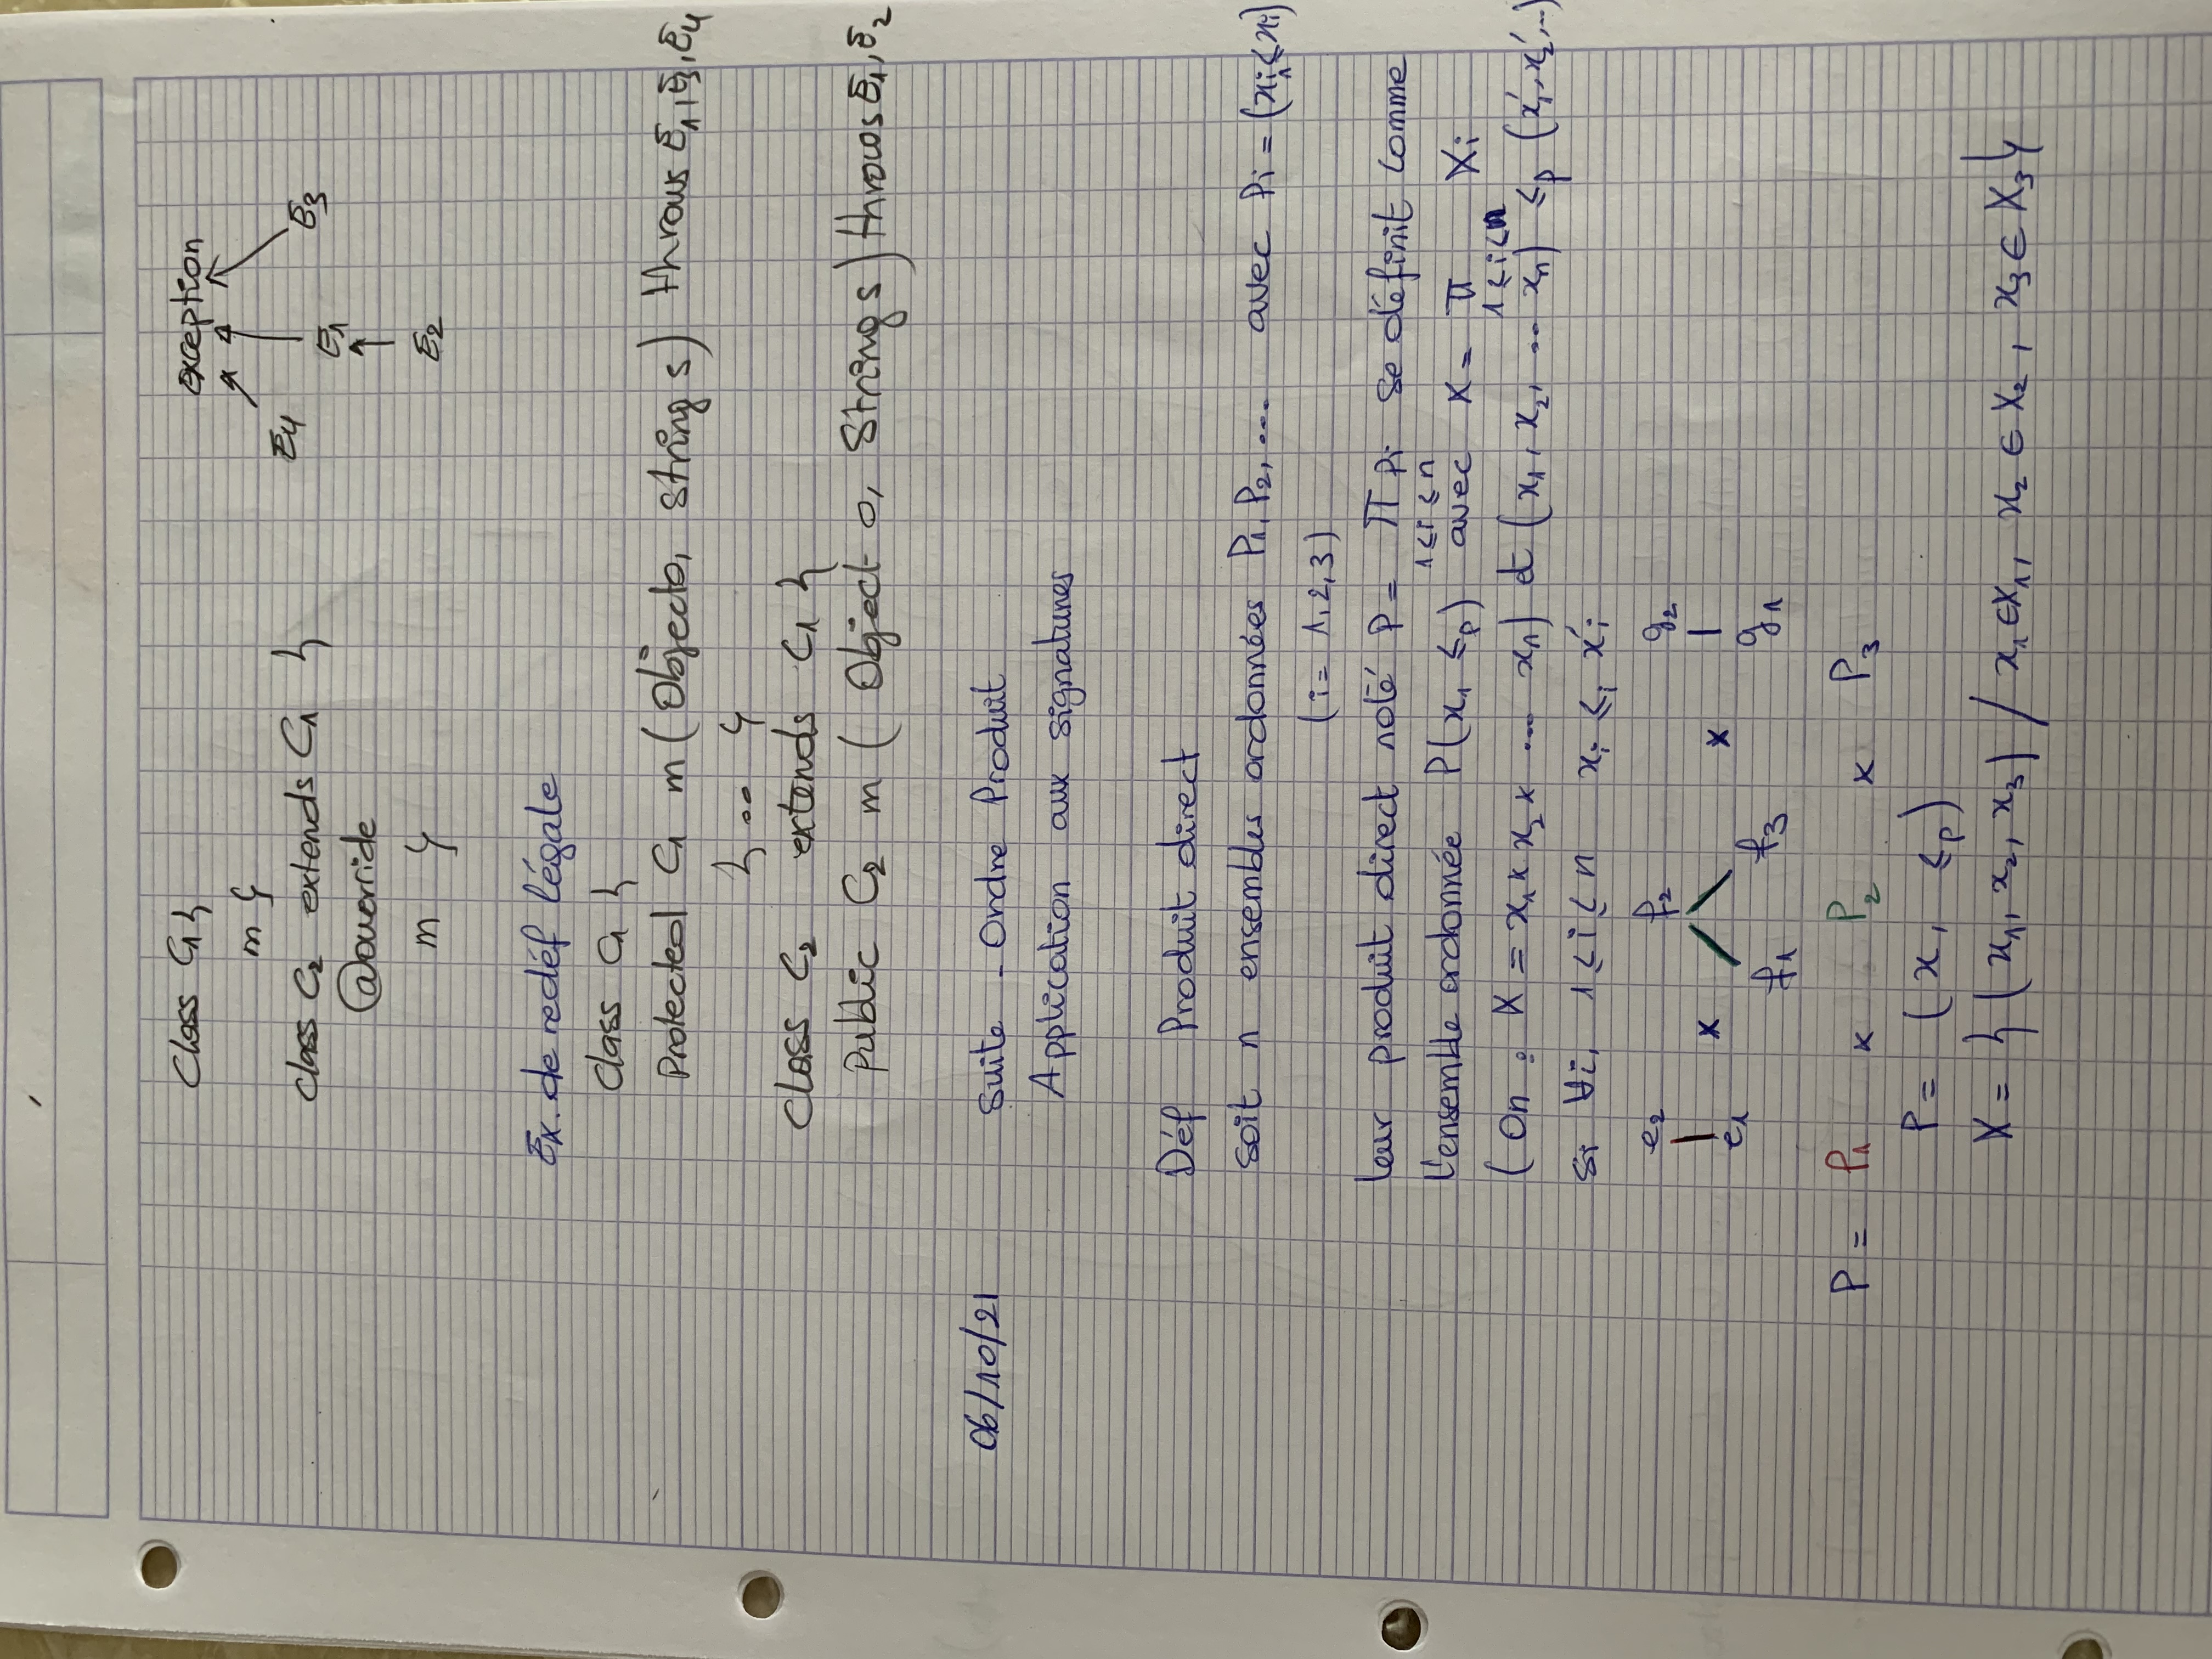 Class C1 {
exception
m }
E4
E3
class C2 extends C1 {
E1
@override
m }
E2
Ex. de redéf légale
class C1 {
Protected C1 m (Objecto, strings) throws E1, E3, E4
{ .. }
class C2 extends C1 {
public C2 m ( Object o, Strings) throws E1, E2
06/10/21 suite - Ordre Produit
Application aux signatures
Déf Produit direct
soit n ensembles ordonnées P1, P2, ... avec Pi = (xi, ≤xi)
(i = 1, 2, 3)
leur produit direct noté P = Π Pi se définit comme
1≤i≤n
l'ensemble ordonnée P(x, ≤p) avec X = Π Xi
1≤i≤n
(On : X = x1 × x2 × ... xn) et (x1, x2, .. xn) ≤p (x'1, x'2, ..)
si ∀i, 1≤i≤n xi ≤i x'i
e2 f2 g2
× ×
e1 f1 f3 g1
P = P1 × P2 × P3
P = (x, ≤p)
X = { (x1, x2, x3) / x1 ∈ X1, x2 ∈ X2, x3 ∈ X3 }